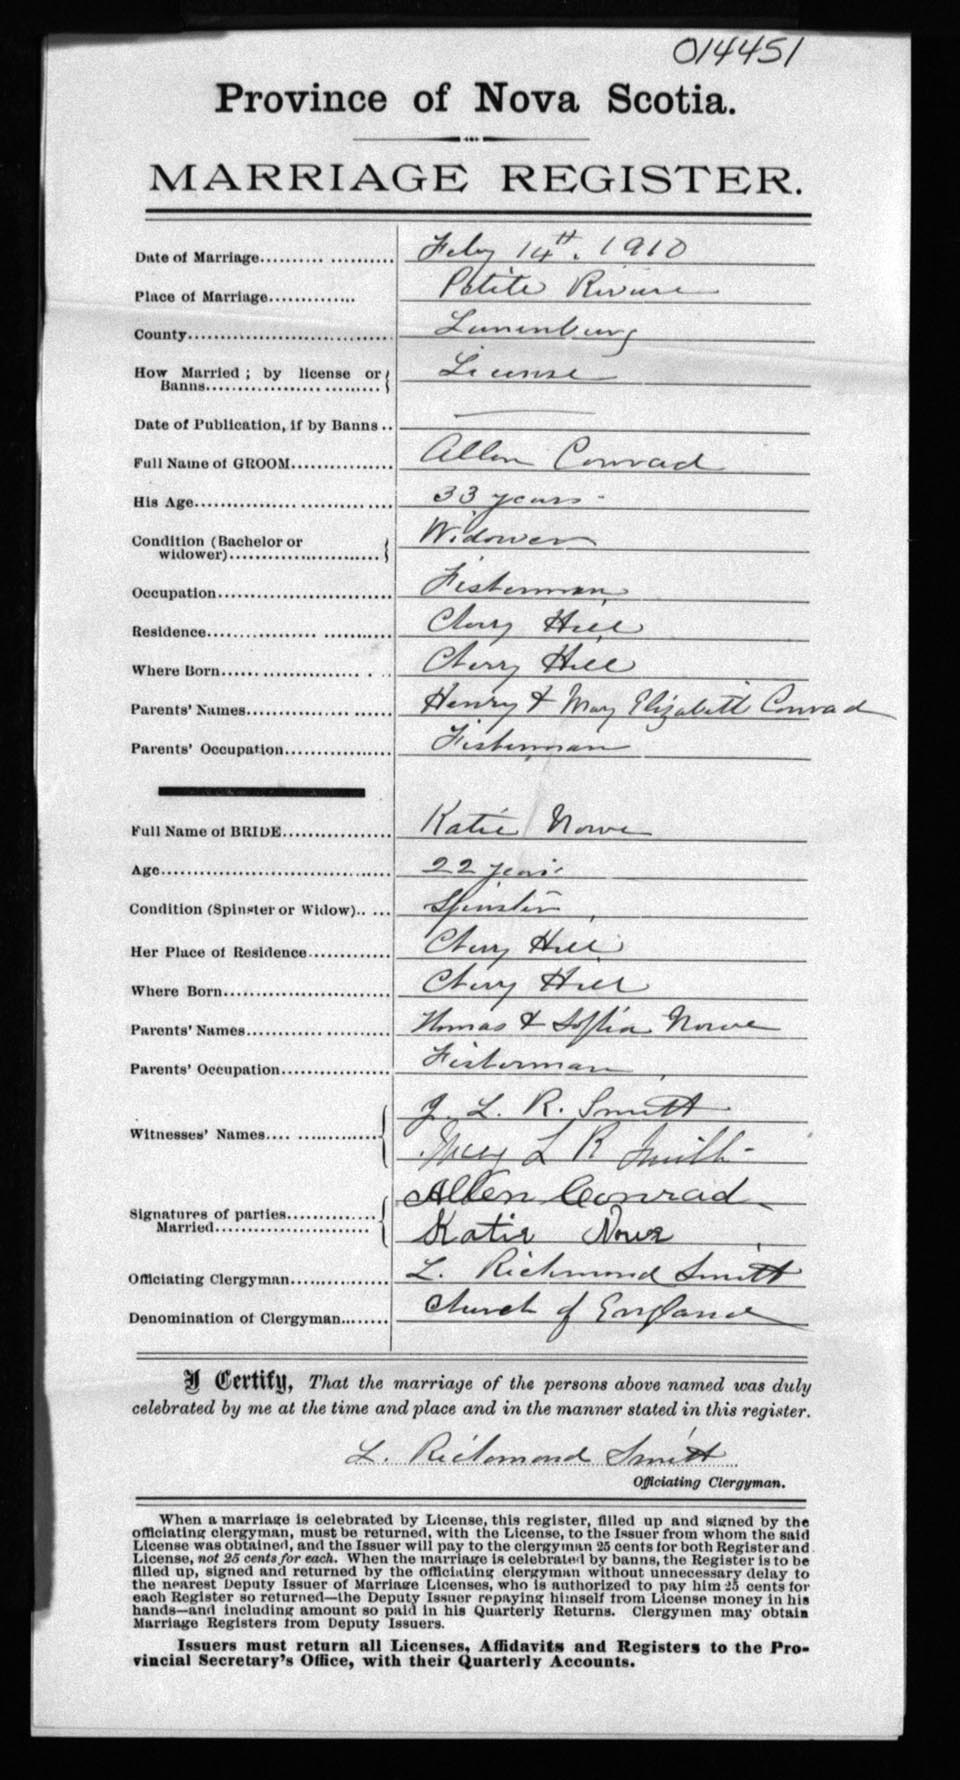 014451
Province of Nova Scotia.
MARRIAGE REGISTER.
Date of Marriage.......... .......... Feby 14th, 1910
Place of Marriage............. Petite Riviere
County.............................. Lunenburg
How Married ; by license or License
Banns.................. .........
Date of Publication, if by Banns ..
Full Name of GROOM............... Allen Conrad
His Age.................. ............ .... 33 years
Condition (Bachelor or Widower
widower)..........................
Occupation............................ Fisherman
Residence................ ............ Cherry Hill
Where Born...... ................. . .. Cherry Hill
Parents' Names................ ...... Henry & Mary Elizabeth Conrad
Parents' Occupation................. Fisherman
Full Name of BRIDE................. Katie Nowe
Age..................................... 22 years
Condition (Spinster or Widow).. ... Spinster
Her Place of Residence............. Cherry Hill
Where Born........................... Cherry Hill
Parents' Names............ ........... Thomas & Sophia Nowe
Parents' Occupation.................. Fisherman
J. L. R. Smith
Witnesses' Names.... ..............
L R Smith
Signatures of parties............... Allen Conrad
Married......................... Katie Nowe
Officiating Clergyman................ L. Richmond Smith
Denomination of Clergyman........ Church of England
I Certify, That the marriage of the persons above named was duly
celebrated by me at the time and place and in the manner stated in this register.
L. Richmond Smith
Officiating Clergyman.
When a marriage is celebrated by License, this register, filled up and signed by the
officiating clergyman, must be returned, with the License, to the Issuer from whom the said
License was obtained, and the Issuer will pay to the clergyman 25 cents for both Register and
License, not 25 cents for each. When the marriage is celebrated by banns, the Register is to be
filled up, signed and returned by the officiating clergyman without unnecessary delay to
the nearest Deputy Issuer of Marriage Licenses, who is authorized to pay him 25 cents for
each Register so returned—the Deputy Issuer repaying himself from License money in his
hands—and including amount so paid in his Quarterly Returns. Clergymen may obtain
Marriage Registers from Deputy Issuers.
Issuers must return all Licenses, Affidavits and Registers to the Pro-
vincial Secretary's Office, with their Quarterly Accounts.